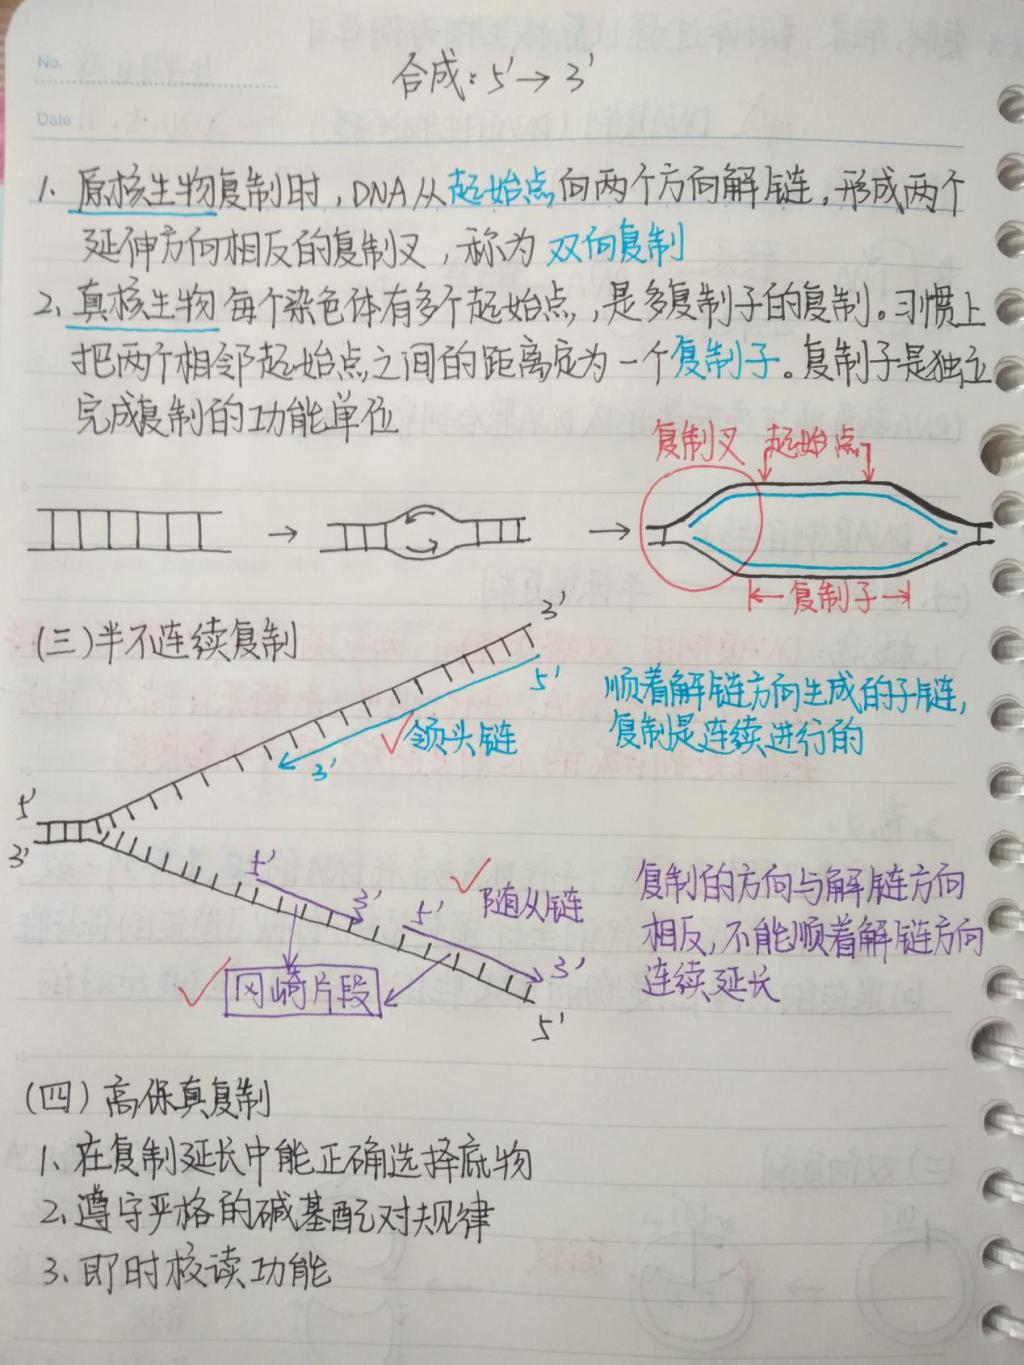 No.
合成：5'→3'
Date
1、原核生物复制时，DNA从起始点向两个方向解链，形成两个
延伸方向相反的复制叉，称为双向复制
2、真核生物每个染色体有多个起始点，是多复制子的复制。习惯上
把两个相邻起始点之间的距离定为一个复制子。复制子是独立
完成复制的功能单位
复制叉 起始点
复制子
(三)半不连续复制
3'
5'
顺着解链方向生成的子链，
复制是连续进行的
领头链
3'
5'
3'
5'
3'
随从链
5'
3'
复制的方向与解链方向
相反，不能顺着解链方向
连续延长
冈崎片段
5'
(四)高保真复制
1、在复制延长中能正确选择底物
2、遵守严格的碱基配对规律
3、即时校读功能